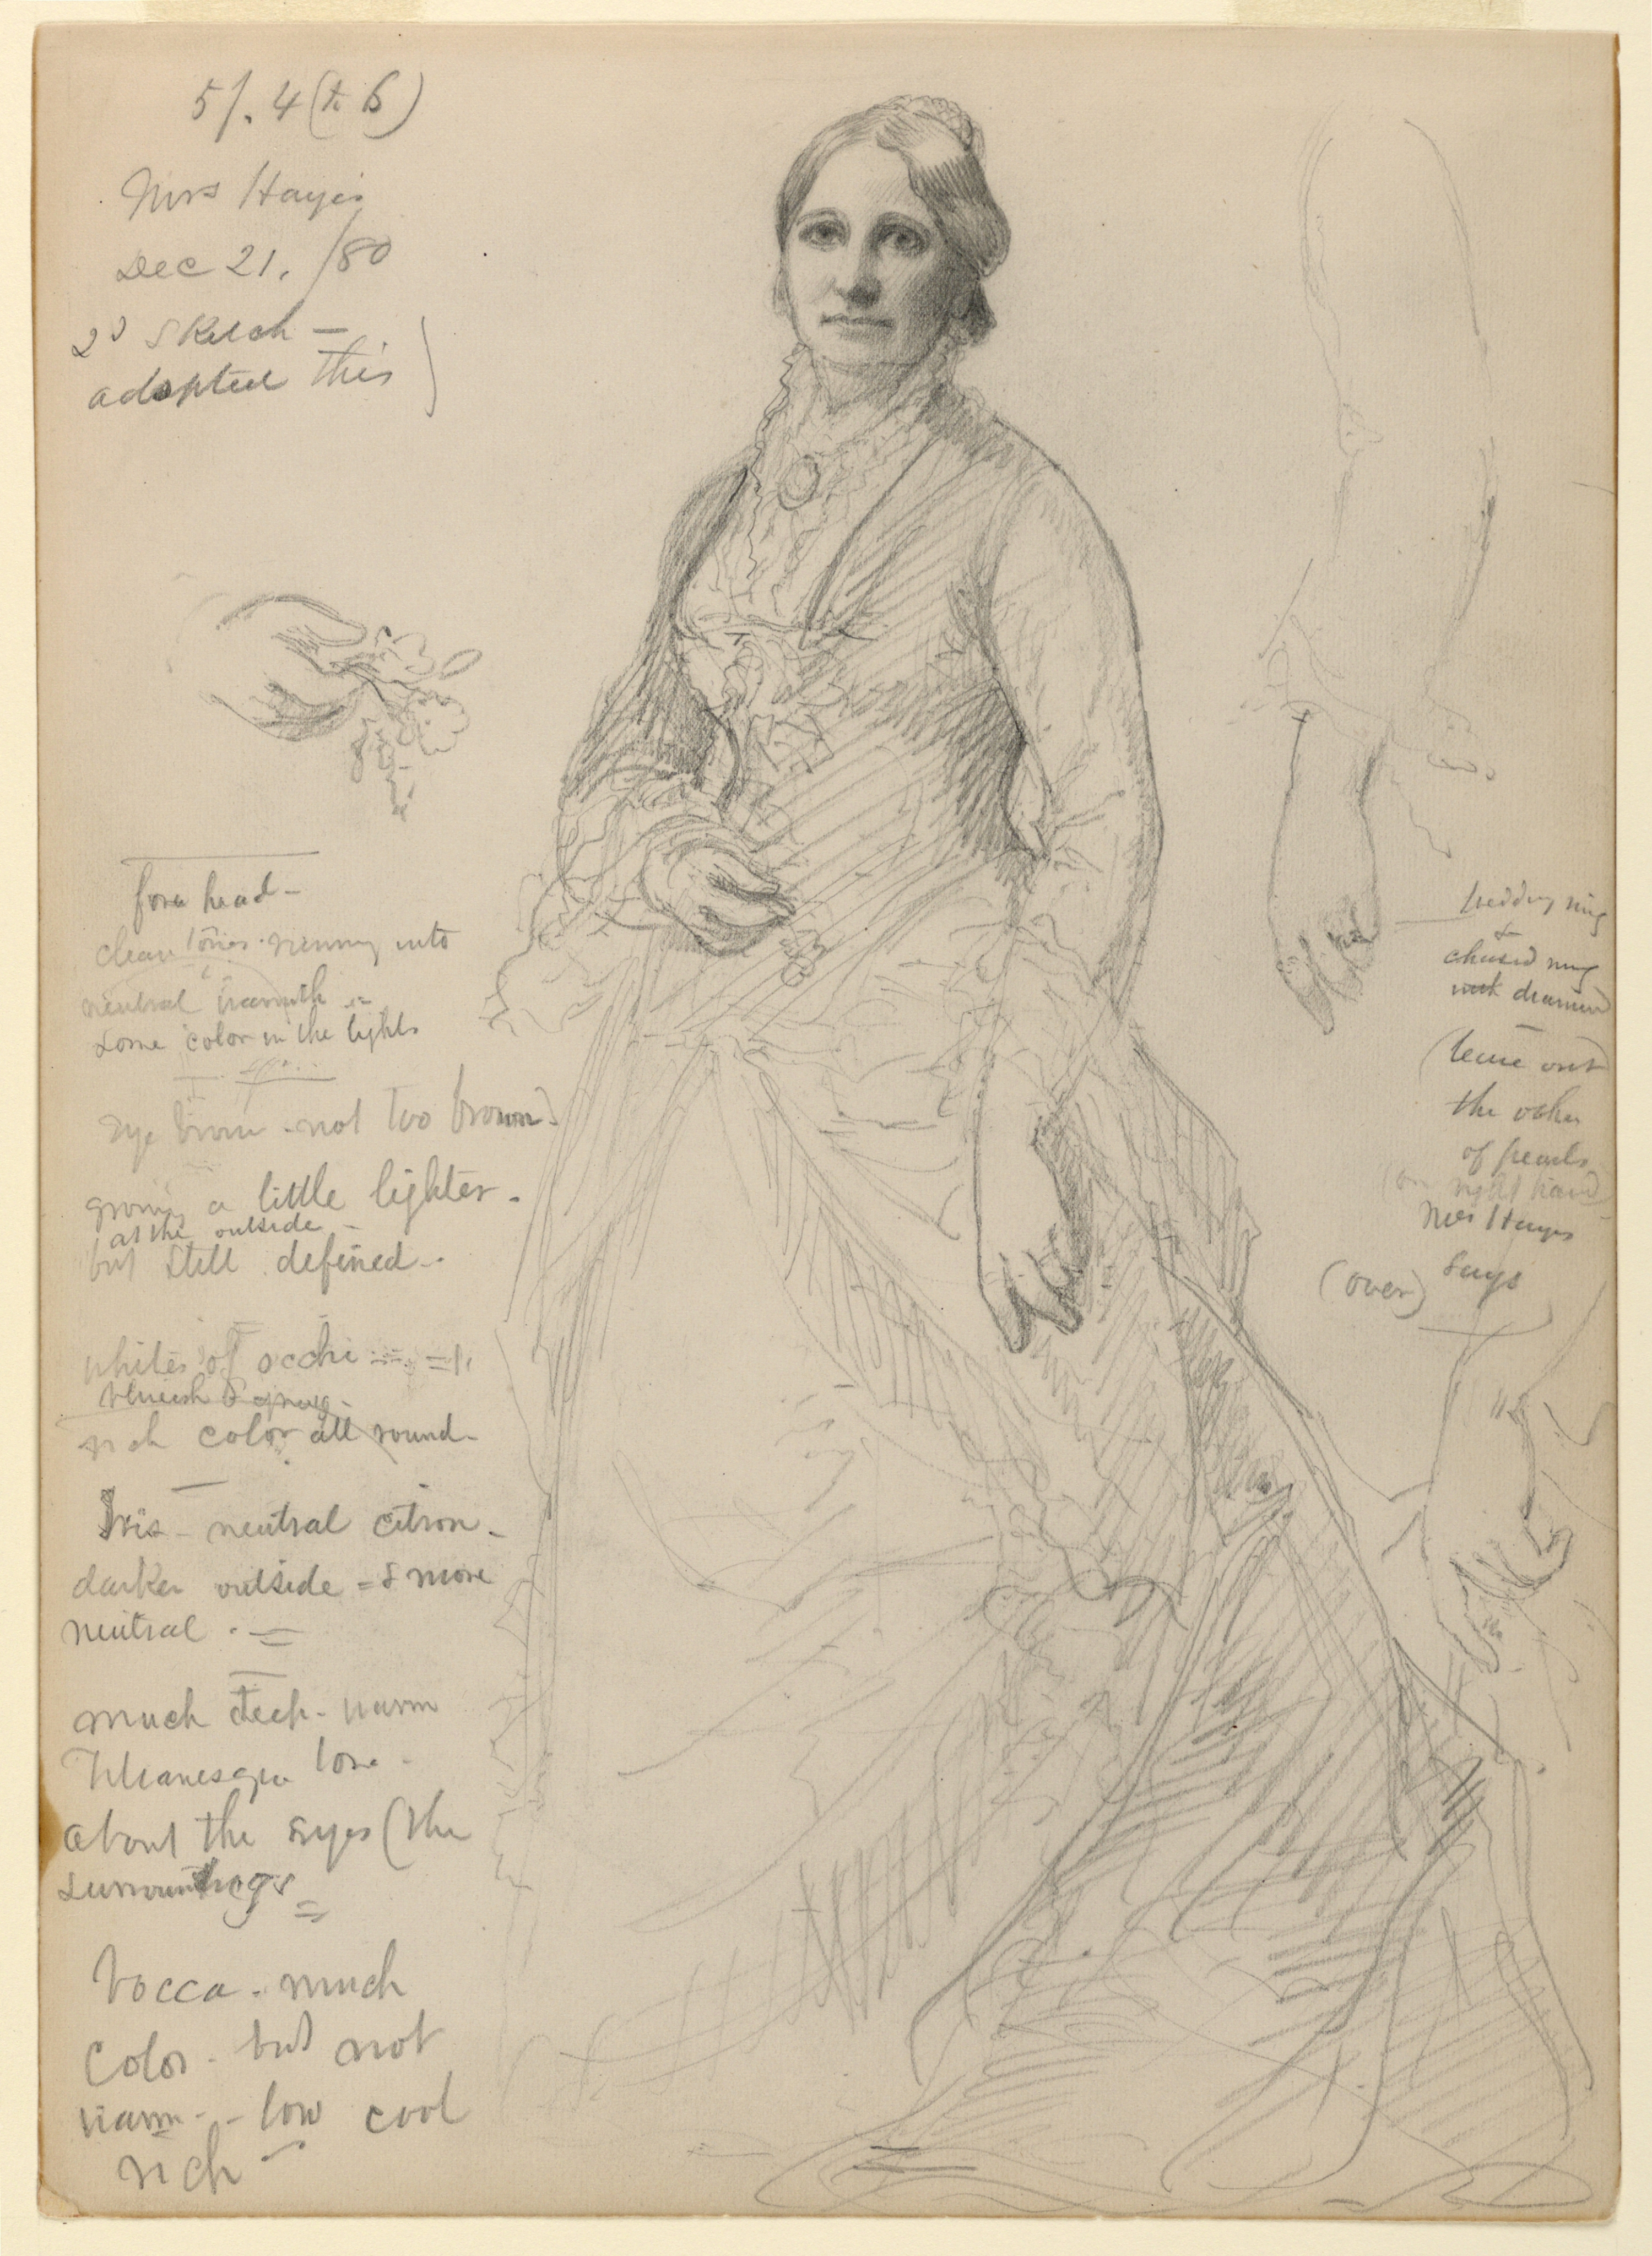 5/. 4 (to 6)
Mrs Hayes
Dec 21. /80
2d Sketch —
adopted this)
fore head —
clear tones. running into
neutral warmth =
some color in the lights
eye brow - not too brown.
growing a little lighter.
at the outside -
but still defined -
whites of occhi =
blueish & gray -
rich color all round -
Iris - neutral citron -
darker outside = & more
neutral . =
much deep - warm
Titianesque tone -
about the eyes (the
surroundings =
bocca - much
color - but not
warm - - low cool
rich —
wedding ring
&
chased ring
diamond
(leave out
the other
of pearls
(on right hand)
Mrs Hayes
says
(over)